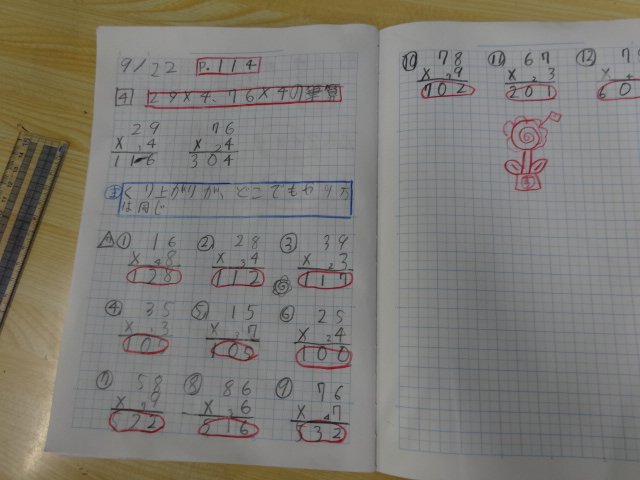 9/22 P.114
4 29×4、76×4の筆算
29 76
×4 ×24
116 304
ま くり上がりが、どこでもやり方
は同じ
① 16 ② 28 ③ 39
×48 ×34 ×23
128 112 117
④ 35 ⑤ 15 ⑥ 25
×13 ×37 ×24
105 105 100
⑦ 58 ⑧ 86 ⑨ 76
×9 ×36 ×47
522 516 532
⑩ 78 ⑪ 67 ⑫
×9 ×23 ×
702 201 60